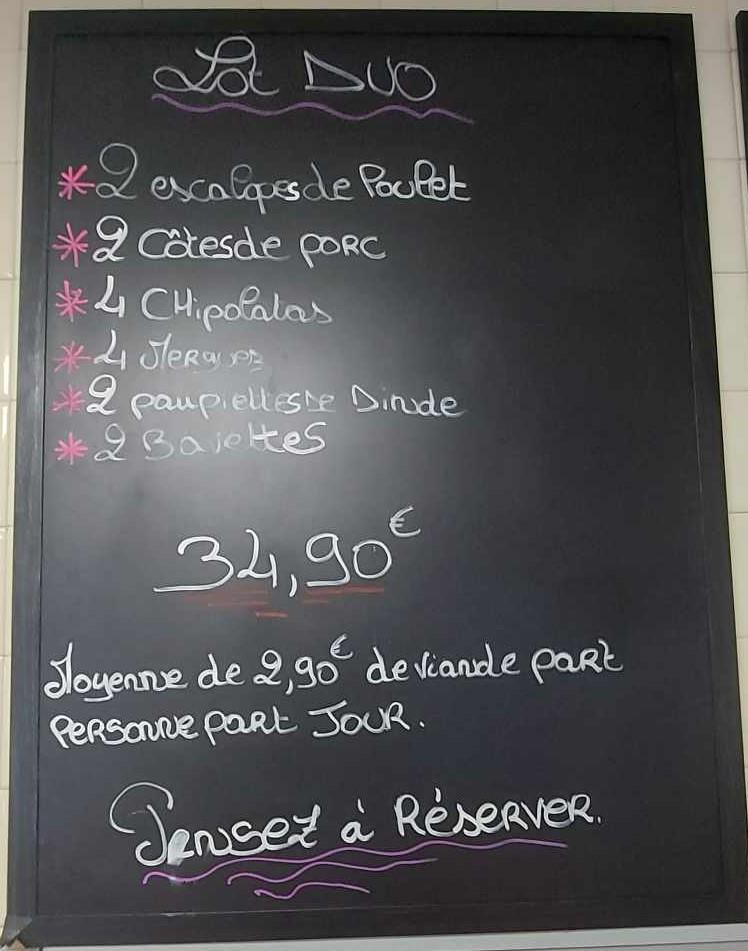 Lot DUO
* 2 escalopes de Poulet
* 2 Côtes de PORC
* 4 CHipolatas
* 4 Merguez
* 2 paupiettes De Dinde
* 2 Bavettes
34,90€
Moyenne de 2,90€ de viande part
Personne part JOUR.
Pensez à RéserVER.